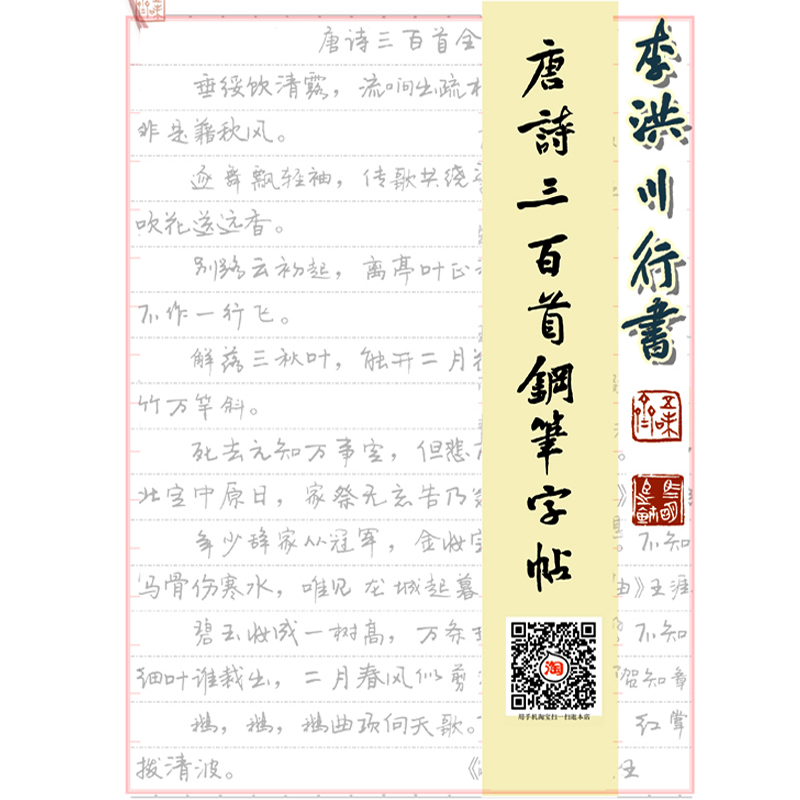 唐诗三百首全
垂绥饮清露，流响出疏
非是藉秋风。
逐舞飘轻袖，传歌共绕
吹花送远香。
别路云初起，离亭叶正
不作一行飞。
解落三秋叶，能开二月
竹万竿斜。
死去元知万事空，但悲
北定中原日，家祭无忘告乃
年少辞家从冠军，金妆宝 。不知
马骨伤寒水，唯见龙城起暮 曲》王涯
碧玉妆成一树高，万条 不知
细叶谁裁出，二月春风似剪 贺知章
鹅，鹅，鹅曲项向天歌。 红掌
拨清波。
唐詩三百首鋼筆字帖
淘
用手机淘宝扫一扫逛本店
李洪川行書